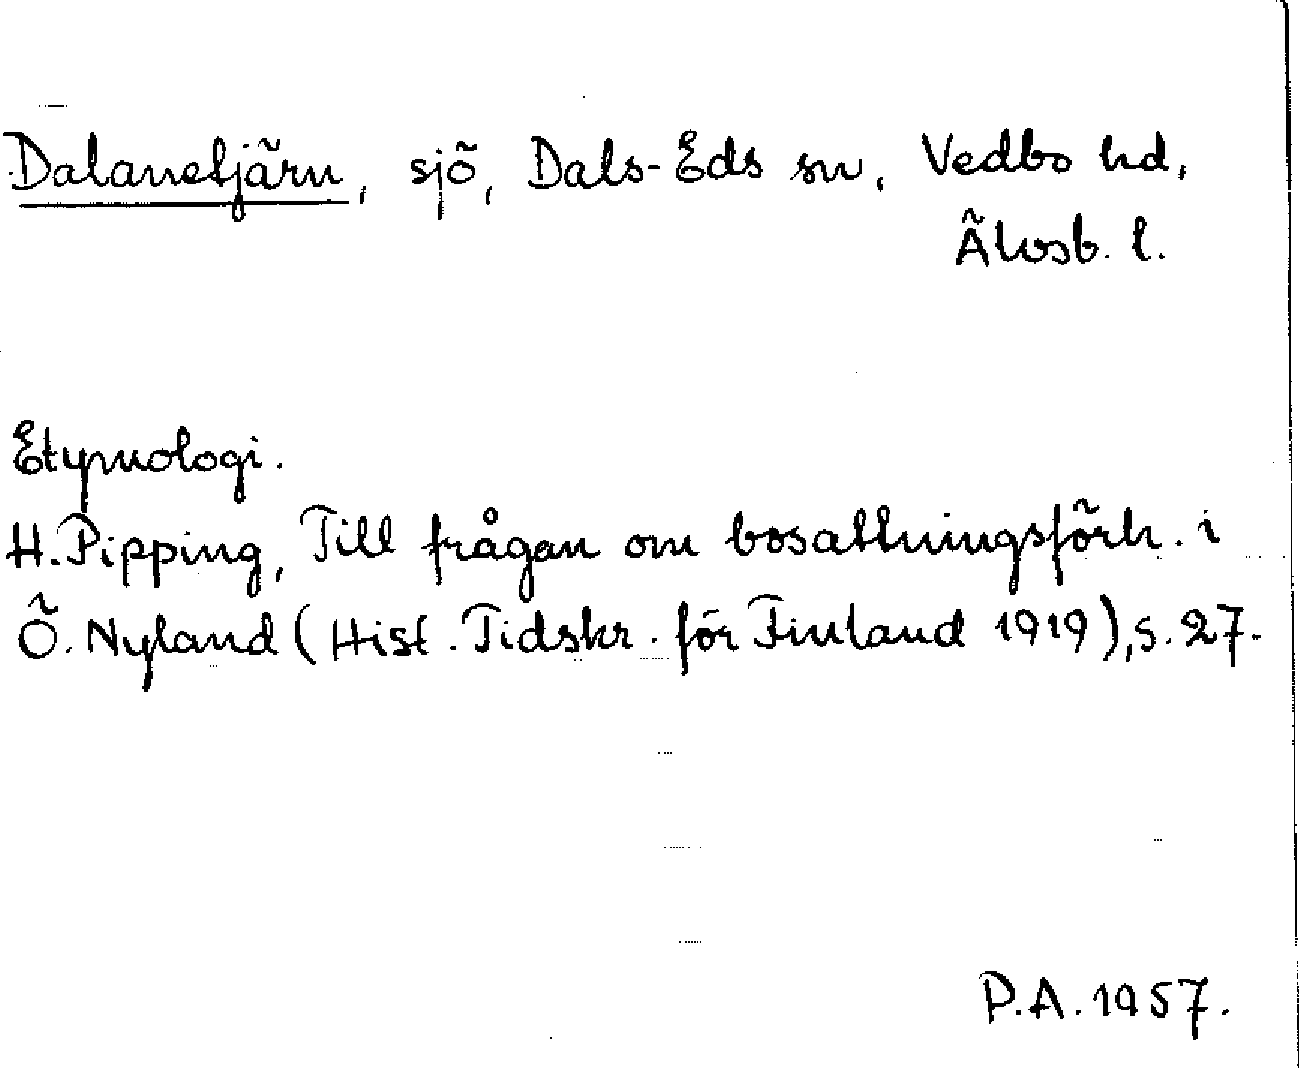 Dalanetjärn, sjö, Dals-Eds sn, Vedbo hd,
Älvsb. l.
Etymologi.
H. Pipping, Till frågan om bosättningsförh. i
Ö. Nyland (Hist. Tidskr. för Finland 1919), s. 27.
P.A. 1957.